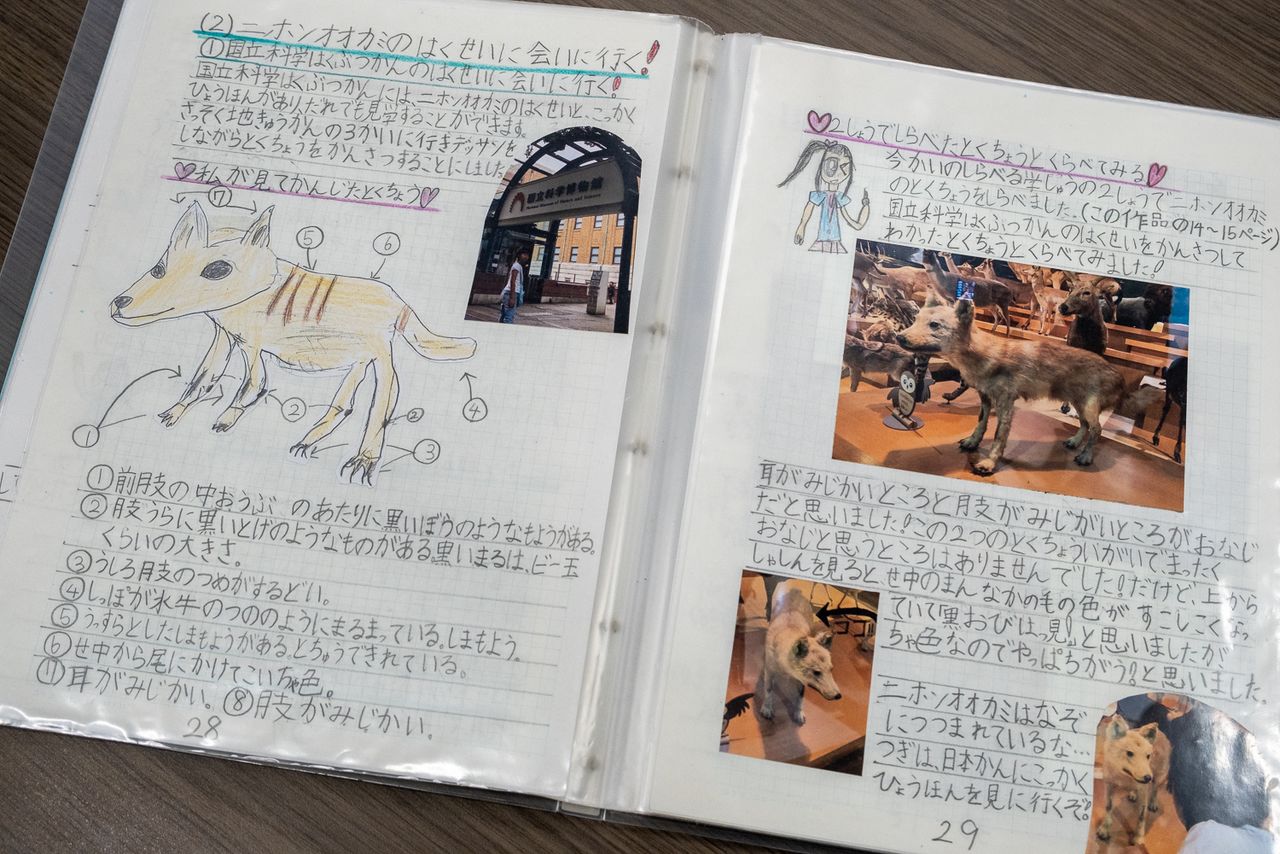 (2) ニホンオオカミのはくせいに会いに行く!
①国立科学はくぶつかんのはくせいに会いに行く!
国立科学はくぶつかんには、ニホンオオカミのはくせいと、こっかく
ひょうほんがあり、だれでも見学することができます。
さっそく地きゅうかんの3かいに行きデッサンを
しながらとくちょうをかんさつすることにしました。
私が見てかんじたとくちょう
国立科学博物館
National Museum of Nature and Science
⑦
⑤
⑥
②
④
①
②
③
①前肢の中おうぶのあたりに黒いぼうのようなもようがある。
②肢うらに黒いとげのようなものがある。黒いまるは、ビー玉
くらいの大きさ。
③うしろ肢のつめがするどい。
④しっぽが水牛のつののようにまるまっている。しまもよう。
⑤うっすらとしたしまもようがある。とちゅうできれている。
⑥せ中から尾にかけてこいちゃ色。
⑦耳がみじかい。⑧肢がみじかい。
28
2しょうでしらべたとくちょうとくらべてみる
今かいのしらべる学しゅうの2しょうでニホンオオカミ
のとくちょうをしらべました。(この作品の14~15ページ)
国立科学はくぶつかんのはくせいをかんさつして
わかったとくちょうとくらべてみました!
耳がみじかいところと肢がみじがいところがおなじ
だと思いました!この2つのとくちょういがいで、まったく
おなじと思うところはありませんでした!だけど、上から
しゃしんを見ると、せ中のまんなかの毛の色がすこしこくなっ
ていて「黒おびはっ見!」と思いましたが
ちゃ色なのでやっぱちがう!?と思いました。
ニホンオオカミはなぞ
につつまれているな…
つぎは、日本かんにこっかく
ひょうほんを見に行くぞ!
29